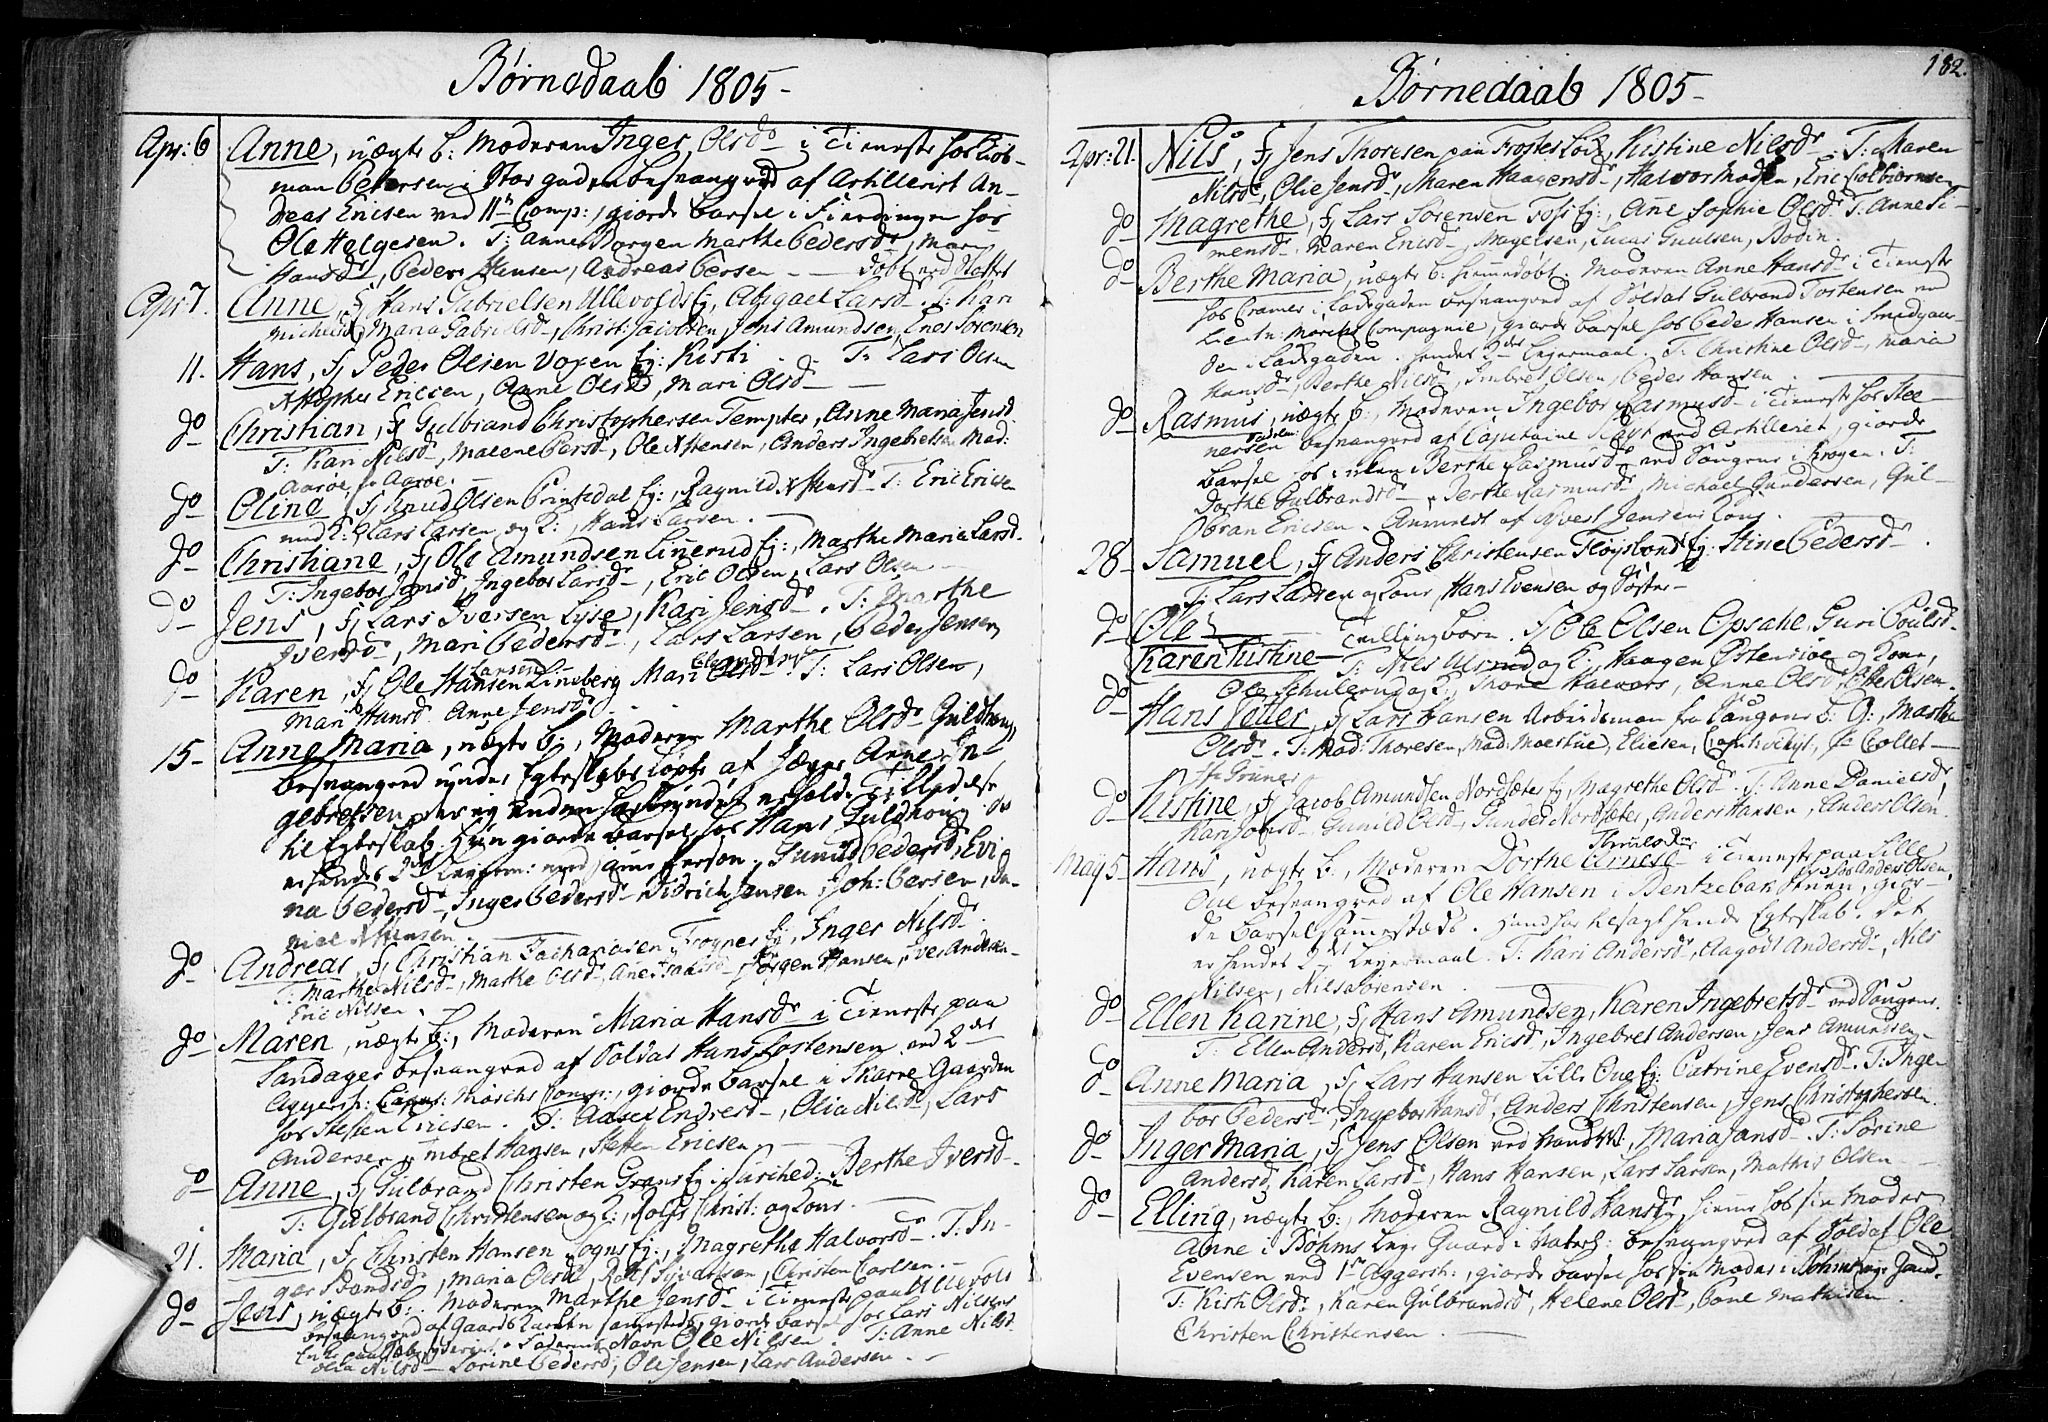 Børnedaab 1805-
Apr: 6 Anne, uægte b: Moderen Inger Olsd. i Tieneste hos Kiøb-
man Petersen i Storgaden besvangret af Artillerist An-
dreas Ericsen ved 11te Comp:, giorde barsel i Fierdingen hos
Ole Helgesen. T: Anne Morgen Marthe Pedersd., Mari
Hansd., Peder Hansen, Andreas Persen
Apr 7. Anne, f: Hans Gabrielsen Ullevold Eg, Abigael Larsd. T: Kari
Michelsd, Maria Gabrielsd, Christ: Jacobsen, Jens Amundsen, Enes Sørensen
11. Hans, f: Peder Olsen Voxen Eg: Kisti . . T: Lars Olsen
Xstopher Ericsen, Anne Olsd, Mari Olsd
do Christian, f: Gulbrand Christophersen Tempter, Anne Maria Jensd
T: Kari Nilsd, Malene Persd, Ole Xstensen, Anders Ingebretsen Mad:
Aaroe, Aaroe.
do Oline, f: Knud Olsen Printzdal Eg:, Ragnild Xstensd T: Eric Ericsen
med K: Lars Larsen og K:, Hans Larsen.
do Christiane, f: Ole Amundsen Linerud Eg:, Marthe Maria Larsd.
T: Ingebor Jonsd, Ingebor Larsd, Eric Olsen, Lars Olsen
do Jens, f: Lars Iversen Lyse, Kari Jensd. T: Marthe
Iversd, Mari Pedersd, Lars Larsen, Peder Jensen
do Karen, f: Ole Hansen Lineberg Mari Olsd. T: Lars Olsen,
Mari Hansd. Anne Jensd
15- Anne Maria, uægte b:, Moderen Marthe Olsd. Guldhoug
besvangred under Egteskabs løfte af Jæger Arne In-
gebretsen,
til Egteskab. Hun giorde barsel hos Hans Guldhoug
er hendes 2det Leyerm: med samme Person. Gunild Pedersd, Evi
na Pedersd, Inger Pedersd. Didrich Jensen, Joh: Persen, Da-
niel Xstensen.
do Andreas, f: Christian Zachariasen Frogner Eg, Inger Nilsd.
T: Marthe Nilsd, Marthe Olsd, Ane Isaksd, Jørgen Hansen, Iver Andersen
Eric Nilsen.
do Maren, uægte b:, Moderen Maria Hansd i Tieneste paa
Sandager besvangred af Soldat Hans Tostensen ved 2det
Aggersh: Morchs Comp:, giorde barsel i Skarre Gaarden
hos Steffen Ericsen. T: Endresd, Olia Nilsd, Lars
Andersen, Imbret Hansen, Steffen Ericsen
do Anne, f: Gulbrand Christen Grans Eg:, Berthe Iversd.
T: Gulbrand Christensen og K:, Rolf Christ: og Kone.
21. Maria, f: Christen Hansen Sogns Eg:, Magrethe Halvorsd. T: In-
ger, Maria Olsd, Rolf Syvertsen, Christen Carlsen.
do Jens, uægte b: Moderen Marthe Jensd i Tieneste paa Ullevold
besvangred af Gaards Karlen sammesteds, giorde barsel hos Lars Nilsens
Faderens Navn Ole Nilsen. T: Anne Nilsd
Olia Nilsd Sorine Pedersd, Ole Jensen, Lars Andersen.
Børnedaab 1805- 182.
Apr: 21. Nils, f: Jens Thoresen paa Frosterløk, Kistine Nilsd. T: Maren
Nilsd, Olie Jensd, Maren Haagensd, Halvor Madsen, Eric Colbiørnsen
do Magrethe, f: Lars Sørensen Foss Eg:, Ane Sophie Olsd. T: Anne Si-
mensd. Maren Ericsd, Magelsen, Lucas Guulsen, Bodin.
do Berthe Maria, uægte b: hiemedøbt. Moderen Anne Hansd i Tieneste
hos Cramer i Ladegaden besvangred af Soldat Gulbrand Tostensen ved
Compagnie, giorde barsel hos Peder Hansen i Smedgaar-
den i Ladegaden. hendes 2det Leyermaal. T: Christine Olsd, Maria
Hansd, Berthe Nilsd, Imbret Olsen, Peder Hansen.
do Rasmus, uægte b:, Moderen Ingebor Rasmusd i Tieneste hos Stee-
nersen besvangred af Capitaine ved Artilleriet, giorde
barsel hos Berthe Rasmusd ved Saugene i Krogen. T:
Dorthe Gulbrandsd, Berthe Rasmusd, Michael Gundersen, Gul-
bran Ericsen. Anmeldt af Nvest Jensens Kone.
28- Samuel, f: Anders Christensen Fløysbond Eg: Stine Pedersd.
T: Lars Larsen og Kone, Hans Evensen og Søster
do Ole
Karen Kistine Tvillingbørn. f: Ole Olsen Opsahl, Guri Poulsd.
T: Nils Ulsrud og K:, Haagen Østensiøe og Kone,
Ole Schulerud og K:, Thore Halvors, Anne Olsd, Peder Olsen.
do Hans Petter, f: Lars Hansen Arbeidsman fra Saugene b: G:, Marthe
Olsd. T: Mad: Thoresen, Mad: Moestue, Eliesen, Capt: Schyt, Hr Collet
Hr Grüner
do Kistine, f: Jacob Amundsen Nordsæter Eg, Magrethe Olsd. T: Anne Danielsd,
Kari Jonsd, Gunild Olsd, Gunder Nordsæter, Anders Hansen, Anders Olsen.
May 5 Hans, uægte b:, Moderen Dorthe Arnesd i Tieneste paa Lille
Oue besvangred af Ole Hansen i Bentzebak Stuen, gior-
de barsel sammesteds. Hand har tilsagt hende Egteskab. Det
er hendes 2det Leyermaal. T: Kari Andersd, Aagodt Andersd, Nils
Nilsen, Nils Sørensen
do Ellen Karine, f: Hans Amundsen, Karen Ingebretsd ved Saugene.
T: Ellen Andersd, Karen Ericsd, Ingebret Andersen, Jens Amundsen
do Anne Maria, f: Lars Hansen Lille Oue Eg: Catrine Evensd. T: Inge-
bor Pedersd, Ingebor Hansd, Anders Christensen, Jens Christophersen.
do Inger Maria, f: Jens Olsen ved Sandvk:, Maria Jansd. T: Sorine
Andersd, Karen Larsd, Hans Hansen, Lars Larsen, Mathis Olsen
do Elling, uægte b:, Moderen Ragnild Hansd, hiemme hos sin Moder
Anne i Bøhms Gaard i Vatterl: besvangred af Soldat Ole
Evensen ved 1ste Aggersh:, giorde barsel hos sin Moder i Bøhms Gaard.
T: Kisti Olsd, Karen Gulbrandsd, Helene Olsd, Poul Mathisen
Christen Christensen